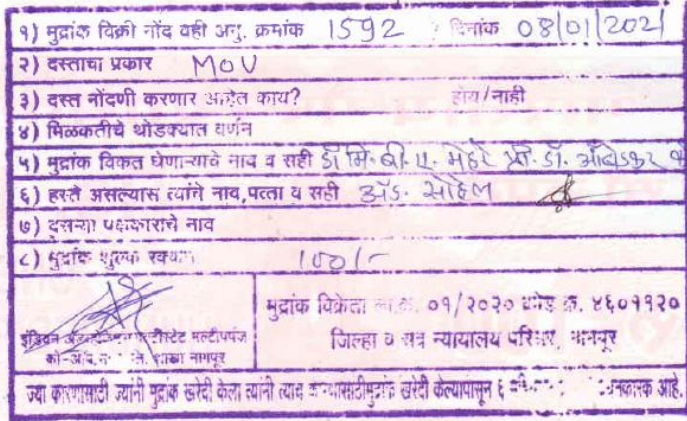 १) मुद्रांक विक्री नोंद वही अनु. क्रमांक 1592 दिनांक 08/01/2021
२) दस्ताचा प्रकार MOU
३) दस्त नोंदणी करणार आहेत काय? होय/नाही
४) मिळकतीचे थोडक्यात वर्णन
५) मुद्रांक विकत घेणाऱ्याचे नाव व सही डॉ मि. बी. ए. मेहरे प्रा. डॉ. आंबेडकर
६) हस्ते असल्यास त्यांचे नाव,पत्ता व सही अॅड. सोहेल
७) दुसऱ्या पक्षकाराचे नाव
८) मुद्रांक शुल्क रक्कम 100/-
इंडियन मल्टीस्टेट मल्टीपर्पज
को-ऑप. लि. शाखा नागपूर
मुद्रांक विक्रेता ला.क्र. ०१/२०२० कोड क्र. ४६०११२०
जिल्हा व सत्र न्यायालय परिसर, नागपूर
ज्या कारणासाठी ज्यांनी मुद्रांक खरेदी केला त्यांनी त्याच कारणासाठी मुद्रांक खरेदी केल्यापासून ६ आहे.